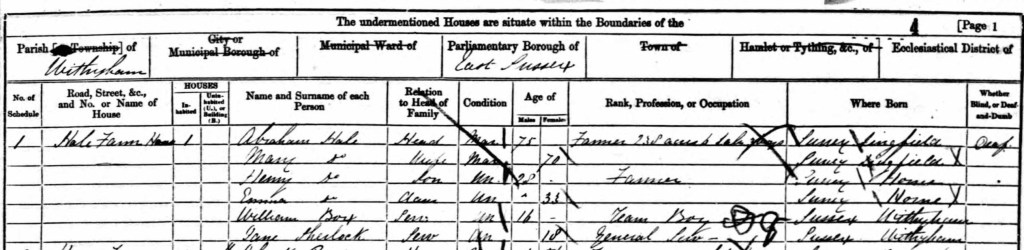 The undermentioned Houses are situate within the Boundaries of the
4 [Page 1
Parish [or Township] of City or Municipal Borough of Municipal Ward of Parliamentary Borough of Town of Hamlet or Tything, &c., of Ecclesiastical District of
Withyham East Sussex
No. of Schedule Road, Street, &c., and No. or Name of House HOUSES Inhabited Uninhabited (U.), or Building (B.) Name and Surname of each Person Relation to Head of Family Condition Age of Males Females Rank, Profession, or Occupation Where Born Whether Blind, or Deaf-and-Dumb
1 Hale Farm House 1 Abraham Hale Head Mar 75 Farmer 238 acres 6 labs Surrey Lingfield Deaf
Mary do Wife Mar 70 Surrey Lingfield
Henry do Son Un 28 Farmer Surrey Horne
Emma do Daur Un 32 Surrey Horne
William Box Serv Un 16 Team Boy Sussex Withyham
Jane Sherlock Serv Un 18 General Serv Sussex Withyham